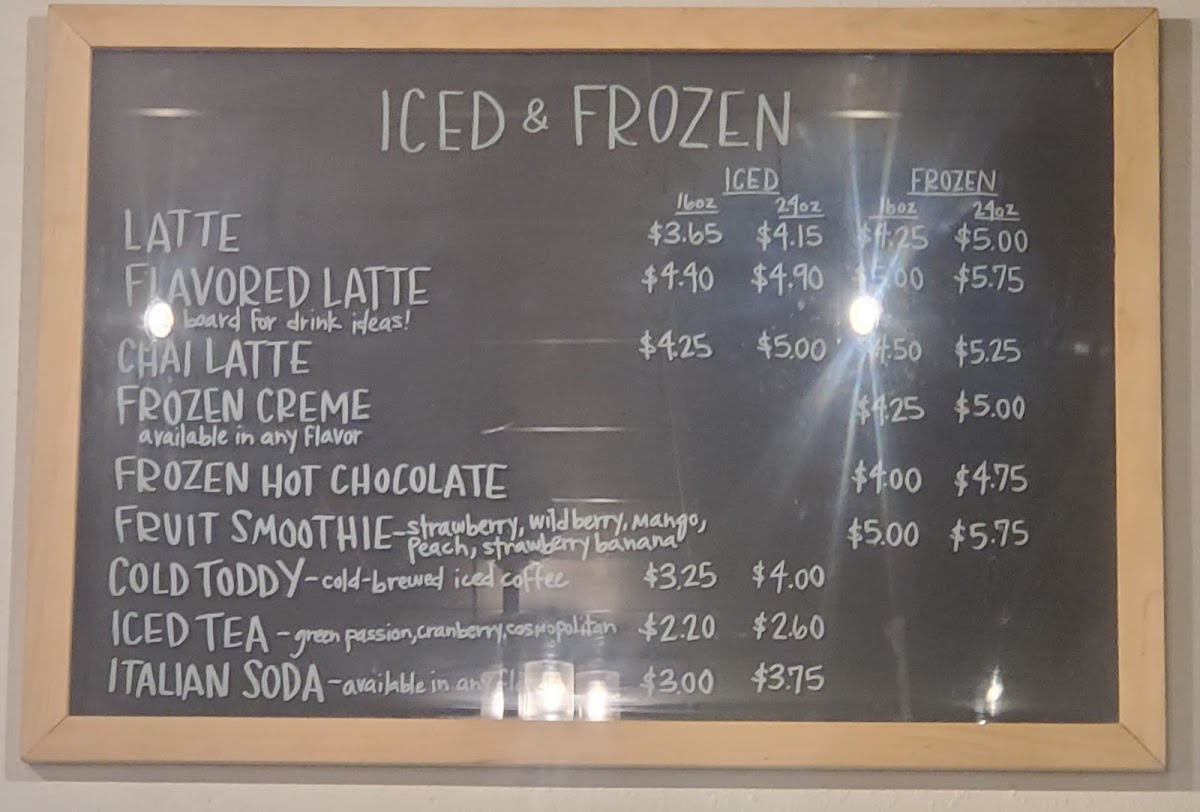 ICED & FROZEN
ICED FROZEN
16oz 24oz 16oz 24oz
LATTE $3.65 $4.15 $4.25 $5.00
FLAVORED LATTE $4.40 $4.90 $5.00 $5.75
board for drink ideas!
CHAI LATTE $4.25 $5.00 4.50 $5.25
FROZEN CREME $4.25 $5.00
available in any flavor
FROZEN HOT CHOCOLATE $4.00 $4.75
FRUIT SMOOTHIE-strawberry, wildberry, mango, $5.00 $5.75
peach, strawberry banana
COLD TODDY-cold-brewed iced coffee $3.25 $4.00
ICED TEA - green passion, cranberry, cosmopolitan $2.20 $2.60
ITALIAN SODA-available in any $3.00 $3.75